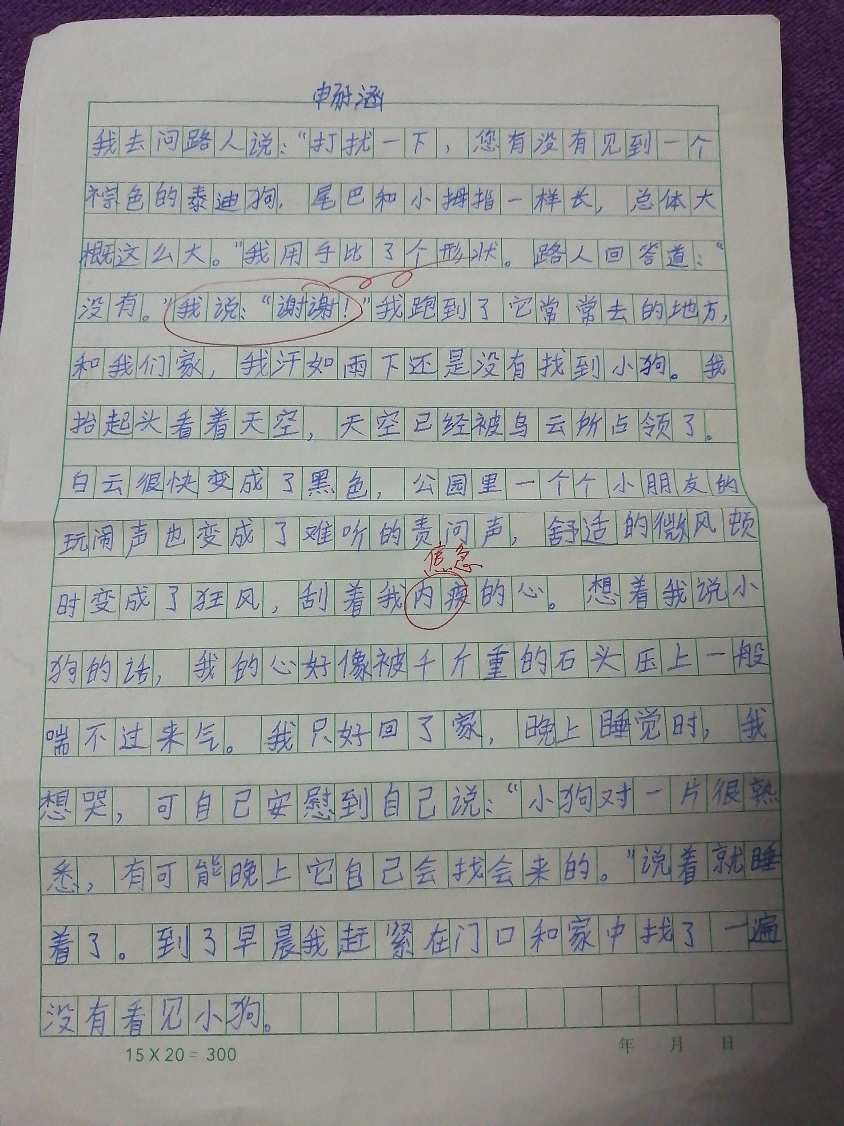 申耐涵
我去问路人说：“打扰一下，您有没有见到一个
棕色的泰迪狗，尾巴和小拇指一样长，总体大
概这么大。”我用手比了个形状。路人回答道：“
没有。”我说：“谢谢！”我跑到了它常常去的地方，
和我们家，我汗如雨下还是没有找到小狗。我
抬起头看着天空，天空已经被乌云所占领了。
白云很快变成了黑色，公园里一个个小朋友的
玩闹声也变成了难听的责问声，舒适的微风顿
焦急
时变成了狂风，刮着我内疚的心。想着我说小
狗的话，我的心好像被千斤重的石头压上一般
喘不过来气。我只好回了家，晚上睡觉时，我
想哭，可自己安慰到自己说：“小狗对一片很熟
悉，有可能晚上它自己会找会来的。”说着就睡
着了。到了早晨我赶紧在门口和家中找了一遍
没有看见小狗。
15×20=300
年 月 日